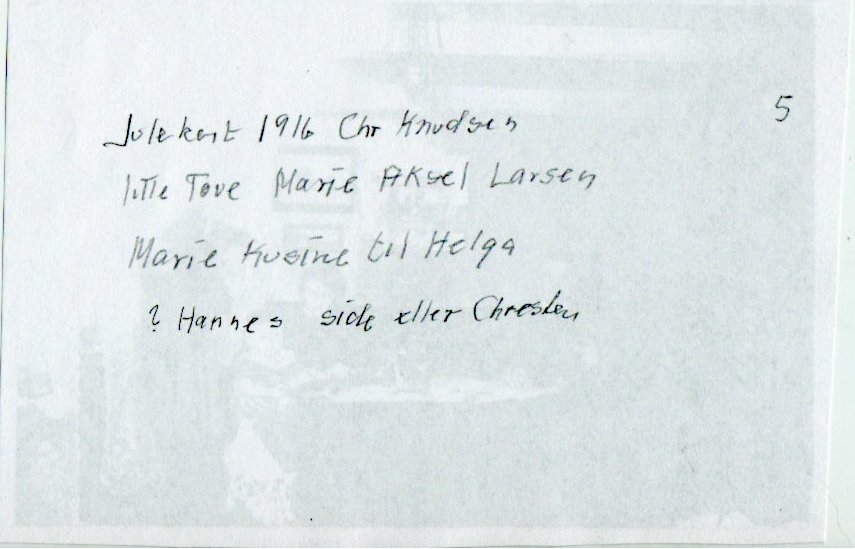 5
Julekort 1916 Chr Knudsen
lille Tove Marie Aksel Larsen
Marie Kusine til Helga
? Hannes side eller Chresten